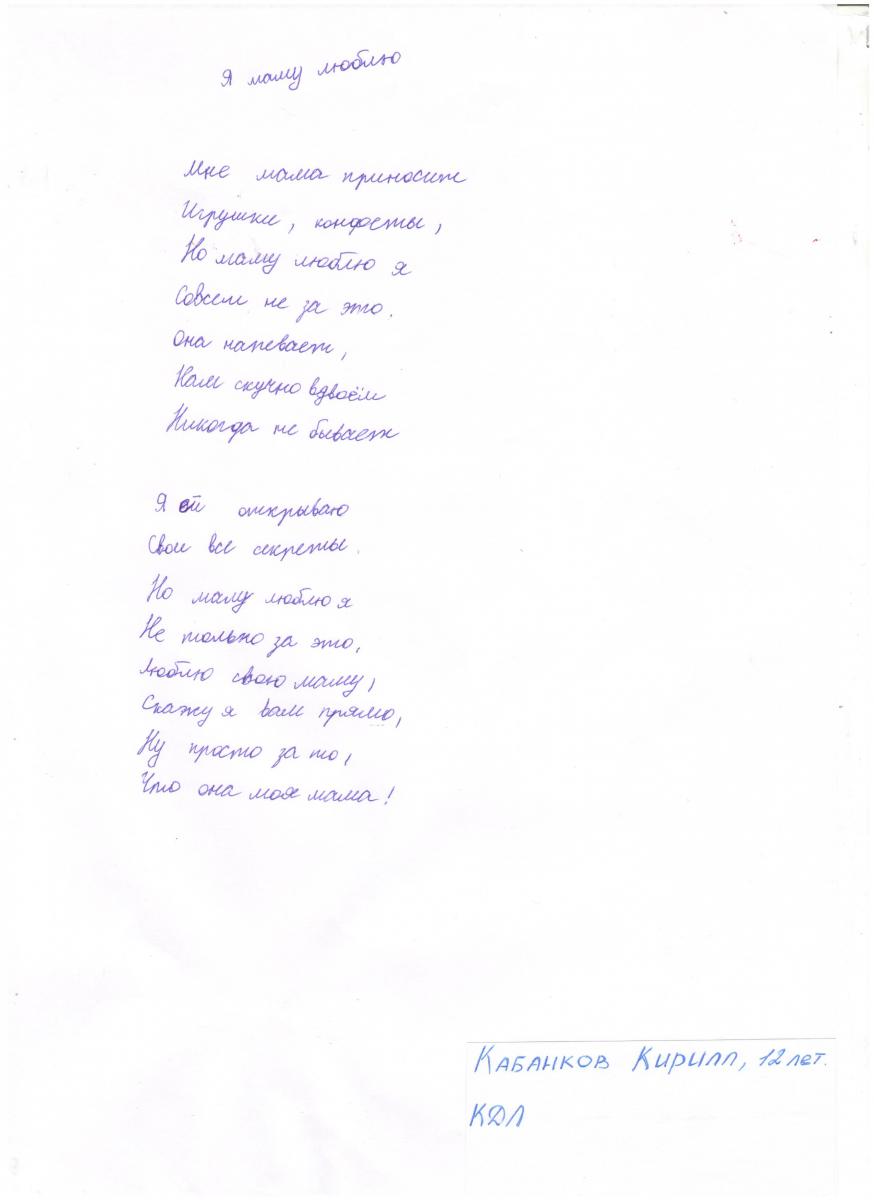 Я маму люблю
Мне мама приносит
Игрушки, конфеты,
Но маму люблю я
Совсем не за это.
Она напевает,
Нам скучно вдвоём
Никогда не бывает
Я ей открываю
Свои все секреты.
Но маму люблю я
Не только за это,
Люблю свою маму,
Скажу я вам прямо,
Ну просто за то,
Что она моя мама!
Кабанков Кирилл, 12 лет.
КДЛ